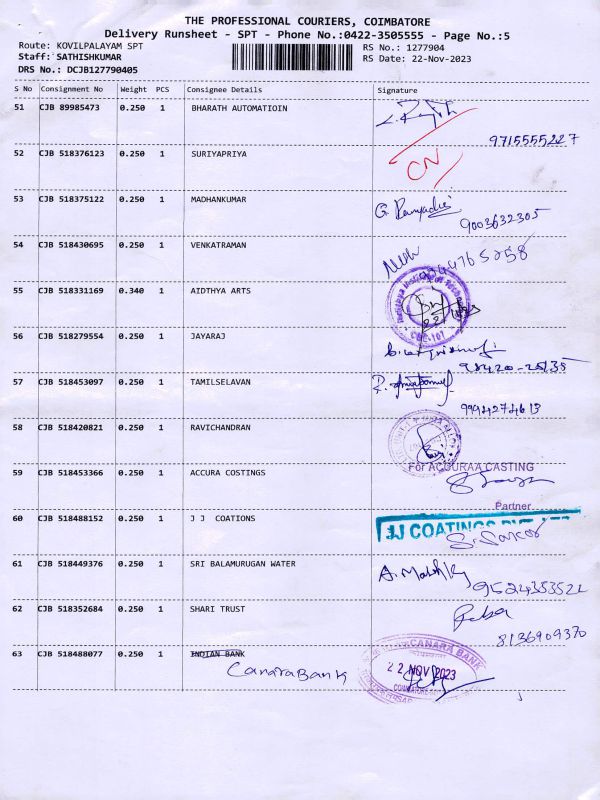 THE PROFESSIONAL COURIERS, COIMBATORE
Delivery Runsheet - SPT - Phone No.:0422-3505555 - Page No.:5
Route: KOVILPALAYAM SPT RS No.: 1277904
Staff: SATHISHKUMAR RS Date: 22-Nov-2023
DRS No.: DCJB127790405
S No Consignment No Weight PCS Consignee Details Signature
51 CJB 89985473 0.250 1 BHARATH AUTOMATIOIN
9715555227
52 CJB 518376123 0.250 1 SURIYAPRIYA CN
53 CJB 518375122 0.250 1 MADHANKUMAR
9003632305
54 CJB 518430695 0.250 1 VENKATRAMAN
55 CJB 518331169 0.340 1 AIDTHYA ARTS
56 CJB 518279554 0.250 1 JAYARAJ
57 CJB 518453097 0.250 1 TAMILSELAVAN
9994274613
58 CJB 518420821 0.250 1 RAVICHANDRAN
For ACCURAA CASTING
59 CJB 518453366 0.250 1 ACCURA COSTINGS
Partner
60 CJB 518488152 0.250 1 J J COATIONS
JJ COATINGS
61 CJB 518449376 0.250 1 SRI BALAMURUGAN WATER
9524353521
62 CJB 518352684 0.250 1 SHARI TRUST
8136909370
63 CJB 518488077 0.250 1 INDIAN BANK
Canara Bank
CANARA BANK
22 NOV 2023